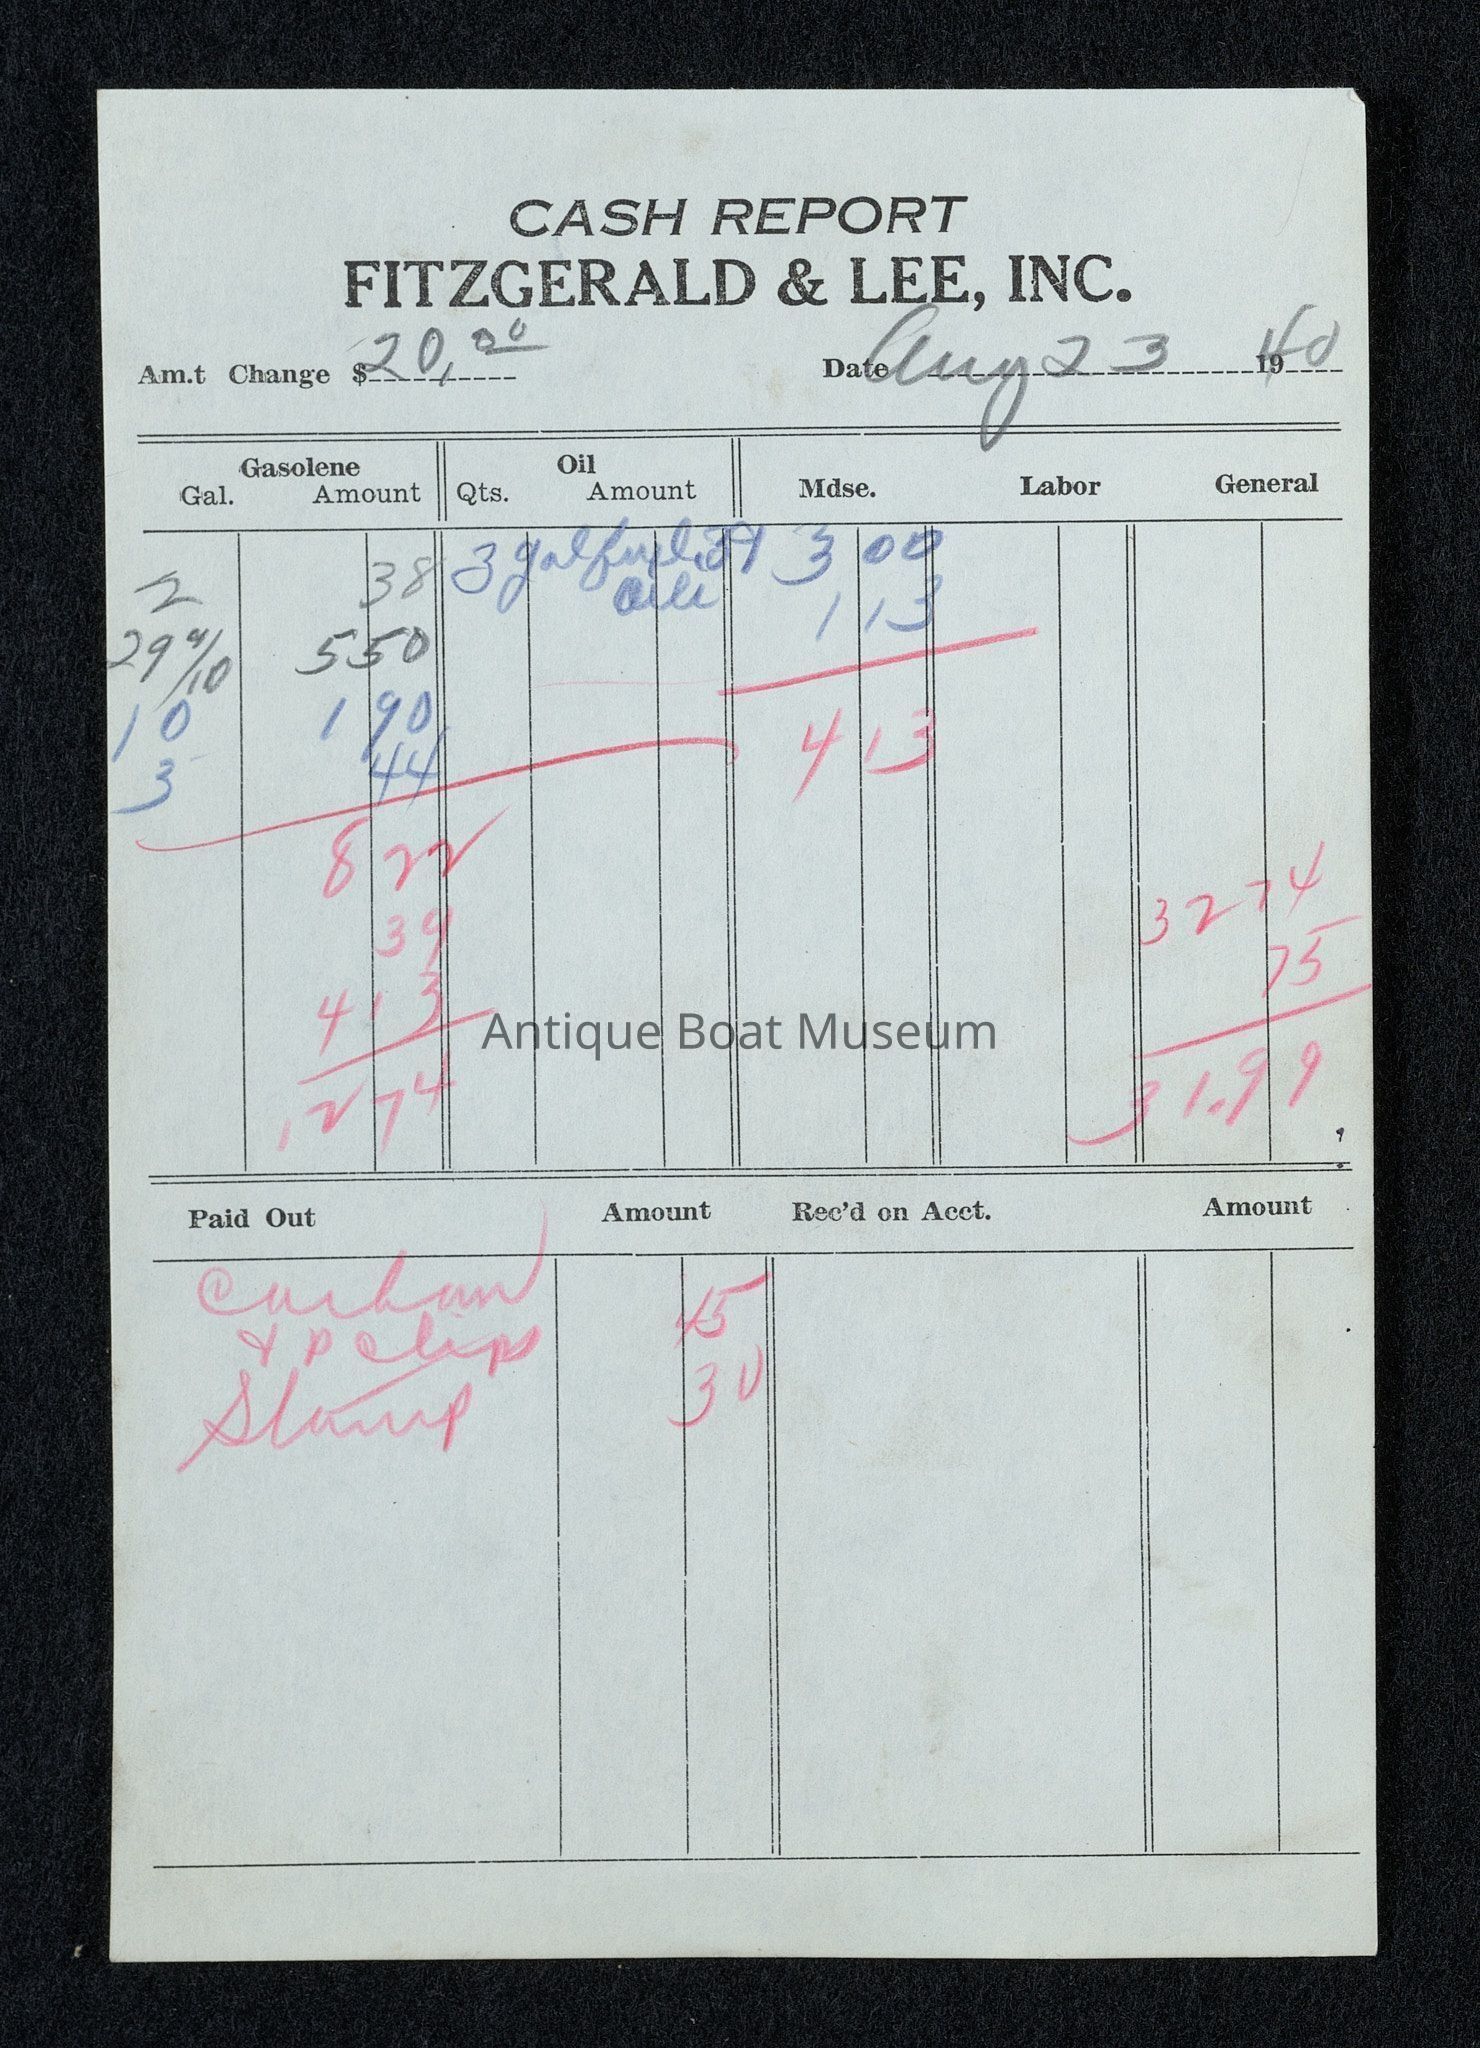 CASH REPORT
FITZGERALD & LEE, INC.
Am.t Change $20,00 Date Aug 23 1940
Gasolene Oil
Gal. Amount Qts. Amount Mdse. Labor General
2 38 3 gal fuel 39 3 00
oil 1 13
29 4/10 5 50
10 1 90 4 13
3 44
8 22
39 32 74
4 13 75
12 74 31.99
Antique Boat Museum
Paid Out Amount Rec'd on Acct. Amount
Carbon
& P Clips 45
Stamp 30